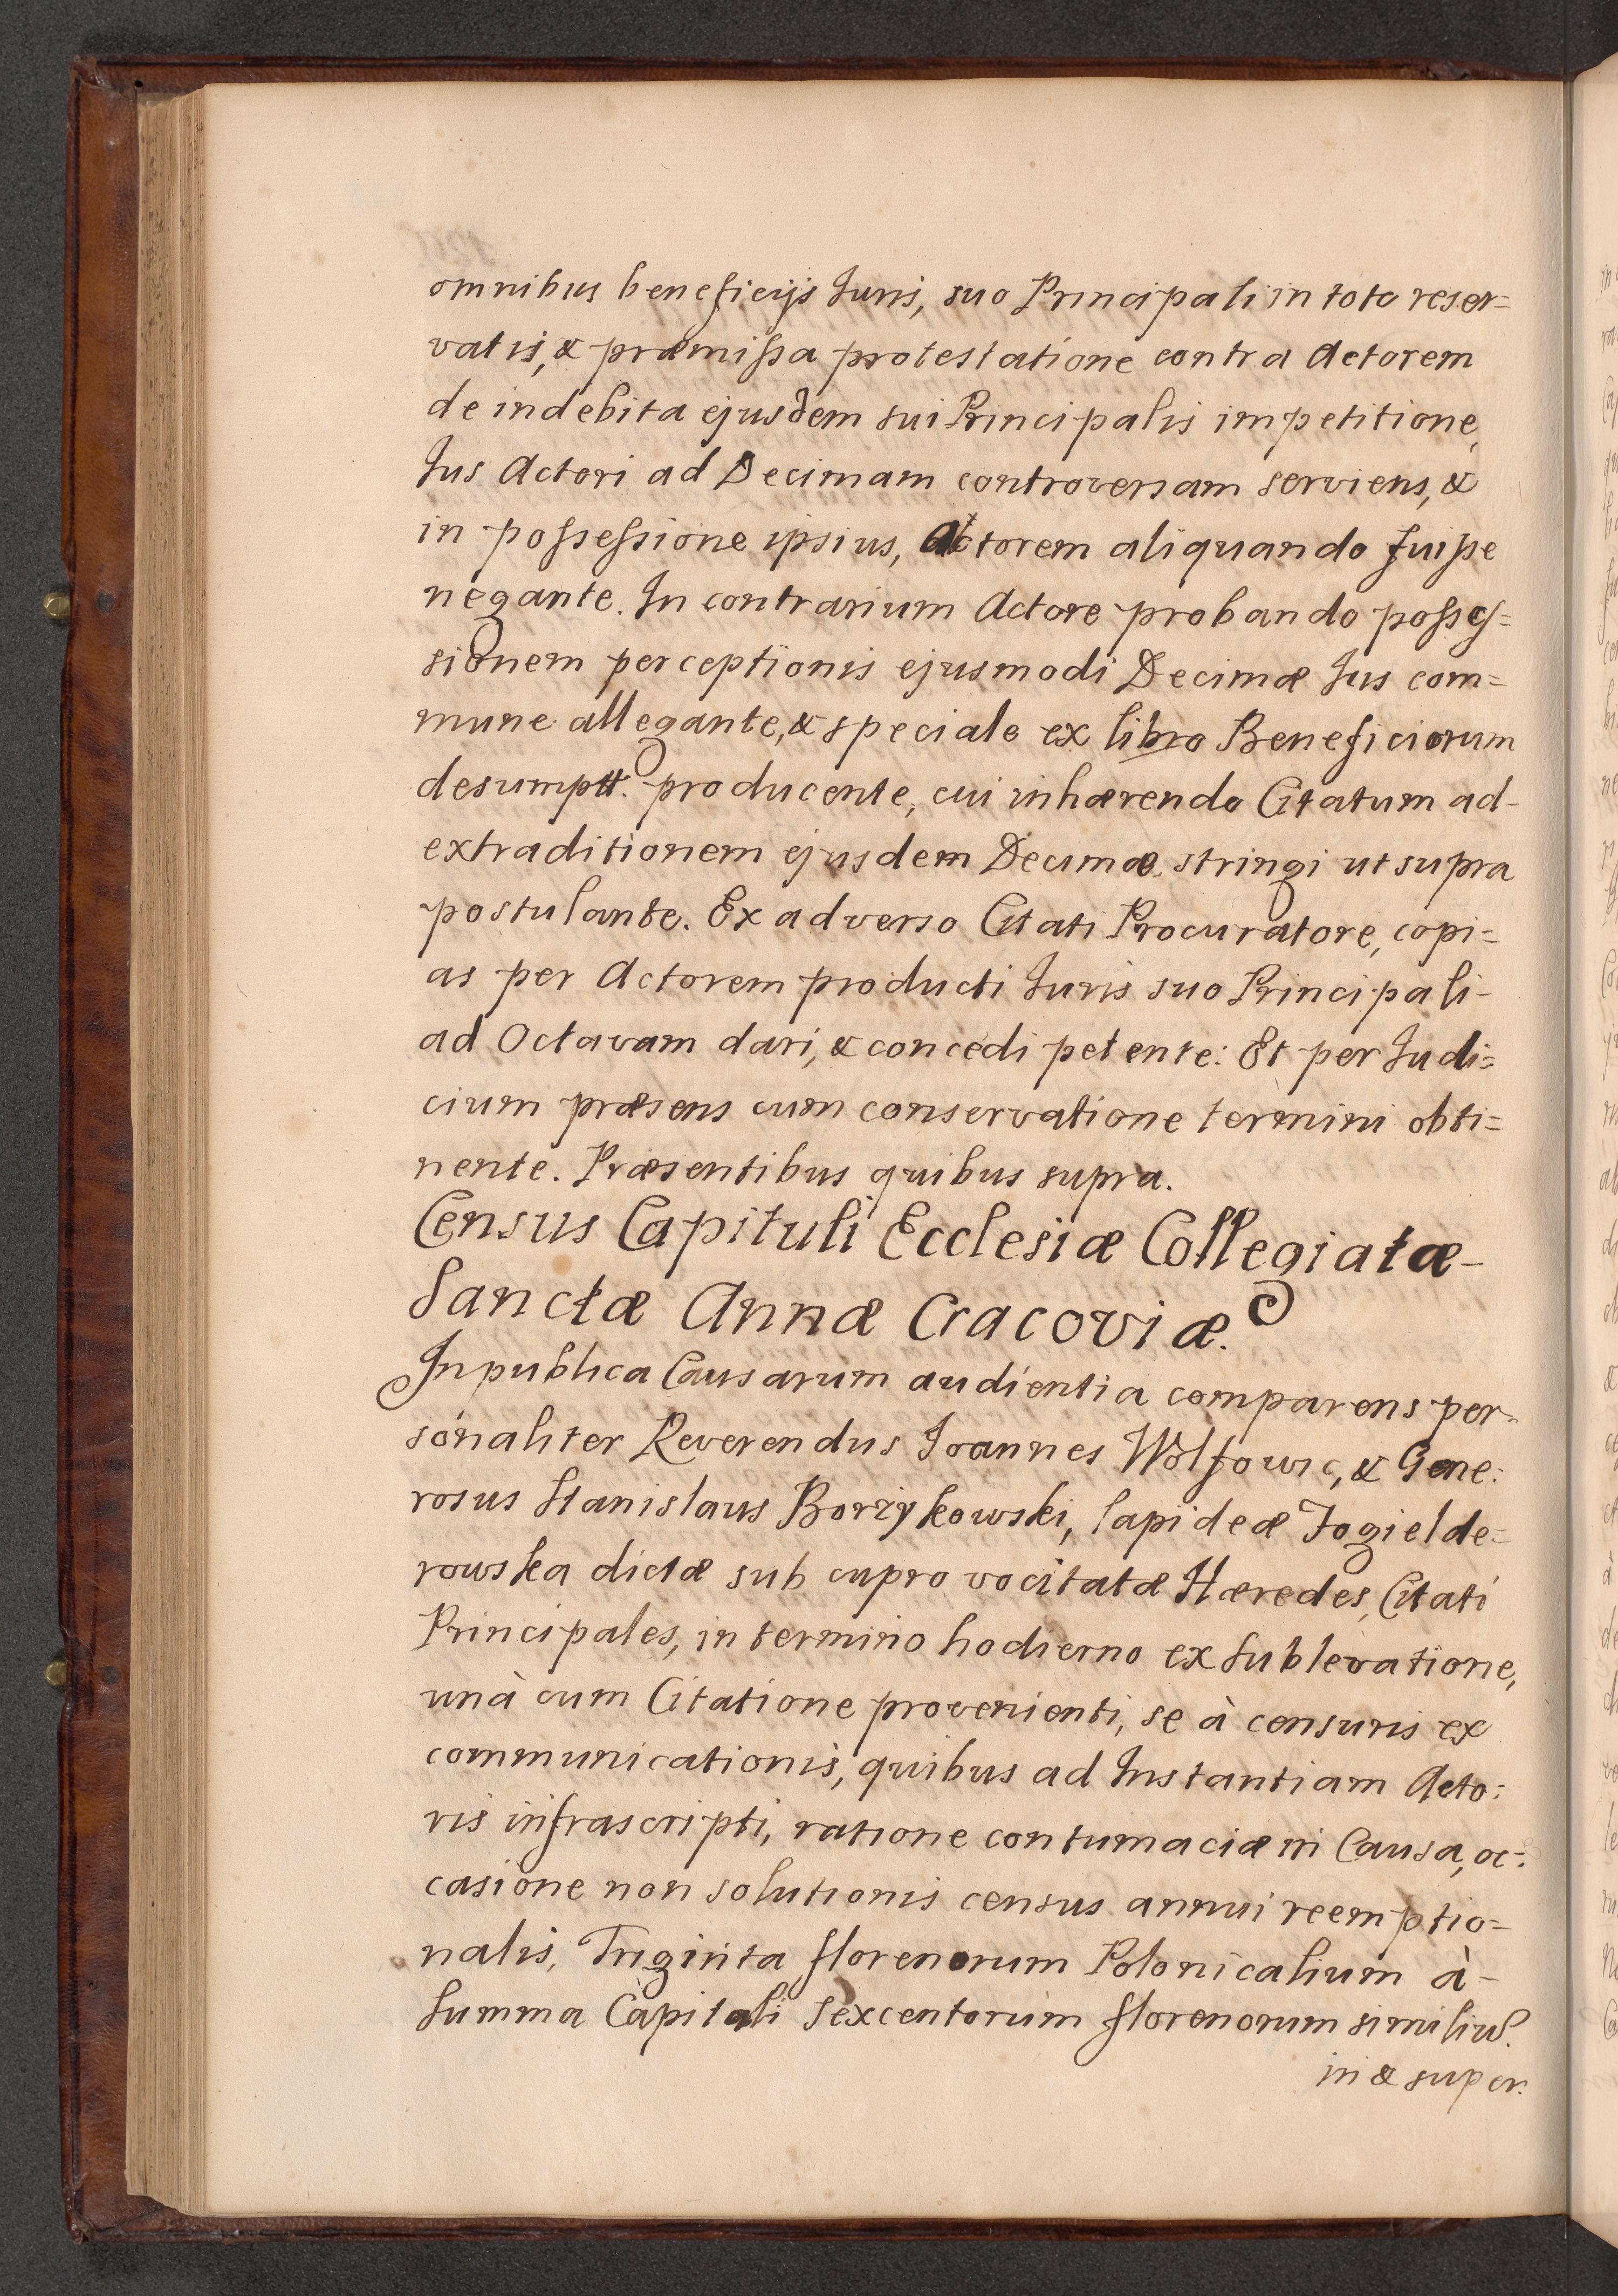 omnibus beneficijs Juris, suo Principali in toto reser=
vatis, & præmissa protestatione contra Actorem
de indebita ejusdem sui Principalis impetitione,
Jus Actori ad Decimam controversam serviens, &
in possessione ipsius, Actorem aliquando fuisse
negante. In contrarium Actore probando posses=
sionem perceptionis ejusmodi Decimæ Jus com=
mune allegante, & speciale ex libro Beneficiorum
desumptt. producente, cui inhærendo Citatum ad-
extraditionem ejusdem Decimæ stringi ut supra
postulante. Ex adverso Citati Procuratore, copi=
as per Actorem producti Juris suo Principali-
ad Octavam dari, & concedi petente: Et per Judi=
cium præsens cum conservatione termini obti=
nente. Præsentibus quibus supra.
Census Capituli Ecclesiæ Collegiatæ-
Sanctæ Annæ Cracoviæ.
In publica Causarum audientia comparens per=
sonaliter Reverendus Joannes Wolfowic, & Gene:
rosus Stanislaus Borzykowski, lapideæ Fogielde=
rowska dictæ sub cupro vocitatæ Hæredes, Citati
Principales, in termino hodierno ex sublevatione,
unà cum Citatione provenienti, se à censuris ex
communicationis, quibus ad Instantiam Acto:
ris infrascripti, ratione contumaciæ in Causa, oc=
casione non solutionis census annui reemptio=
nalis, Triginta florenorum Polonicalium à-
Summa Capitali Sexcentorum florenorum similium.
in & super.